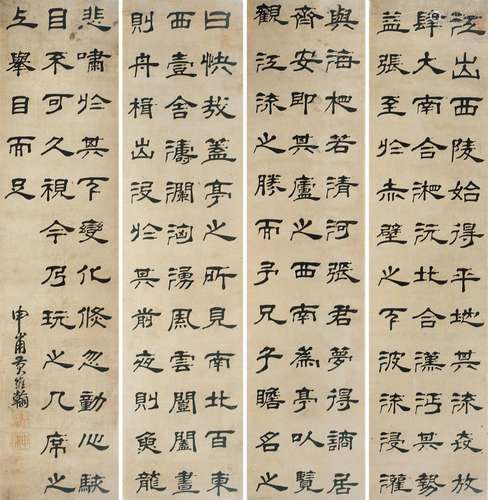 江出西陵始得平地其流奔放
肆大南合湘沅北合漢沔其勢
益張至於赤壁之下波流浸灌
與海相若清河張君夢得謫居
齊安即其廬之西南為亭以覽
觀江流之勝而予兄子瞻名之
曰快哉蓋亭之所見南北百東
西壹舍濤瀾洶湧風雲闔闢晝
則舟楫出沒於其前夜則魚龍
悲嘯於其下變化倏忽動心駭
目不可久視今乃玩之几席之
上舉目而足
申甫黃維翰